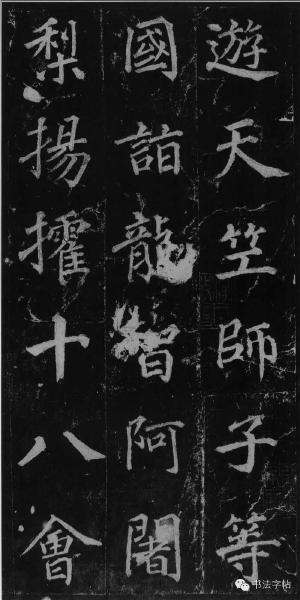 遊天竺師子等
國詣龍智阿闍
梨揚攉十八會
书法字帖